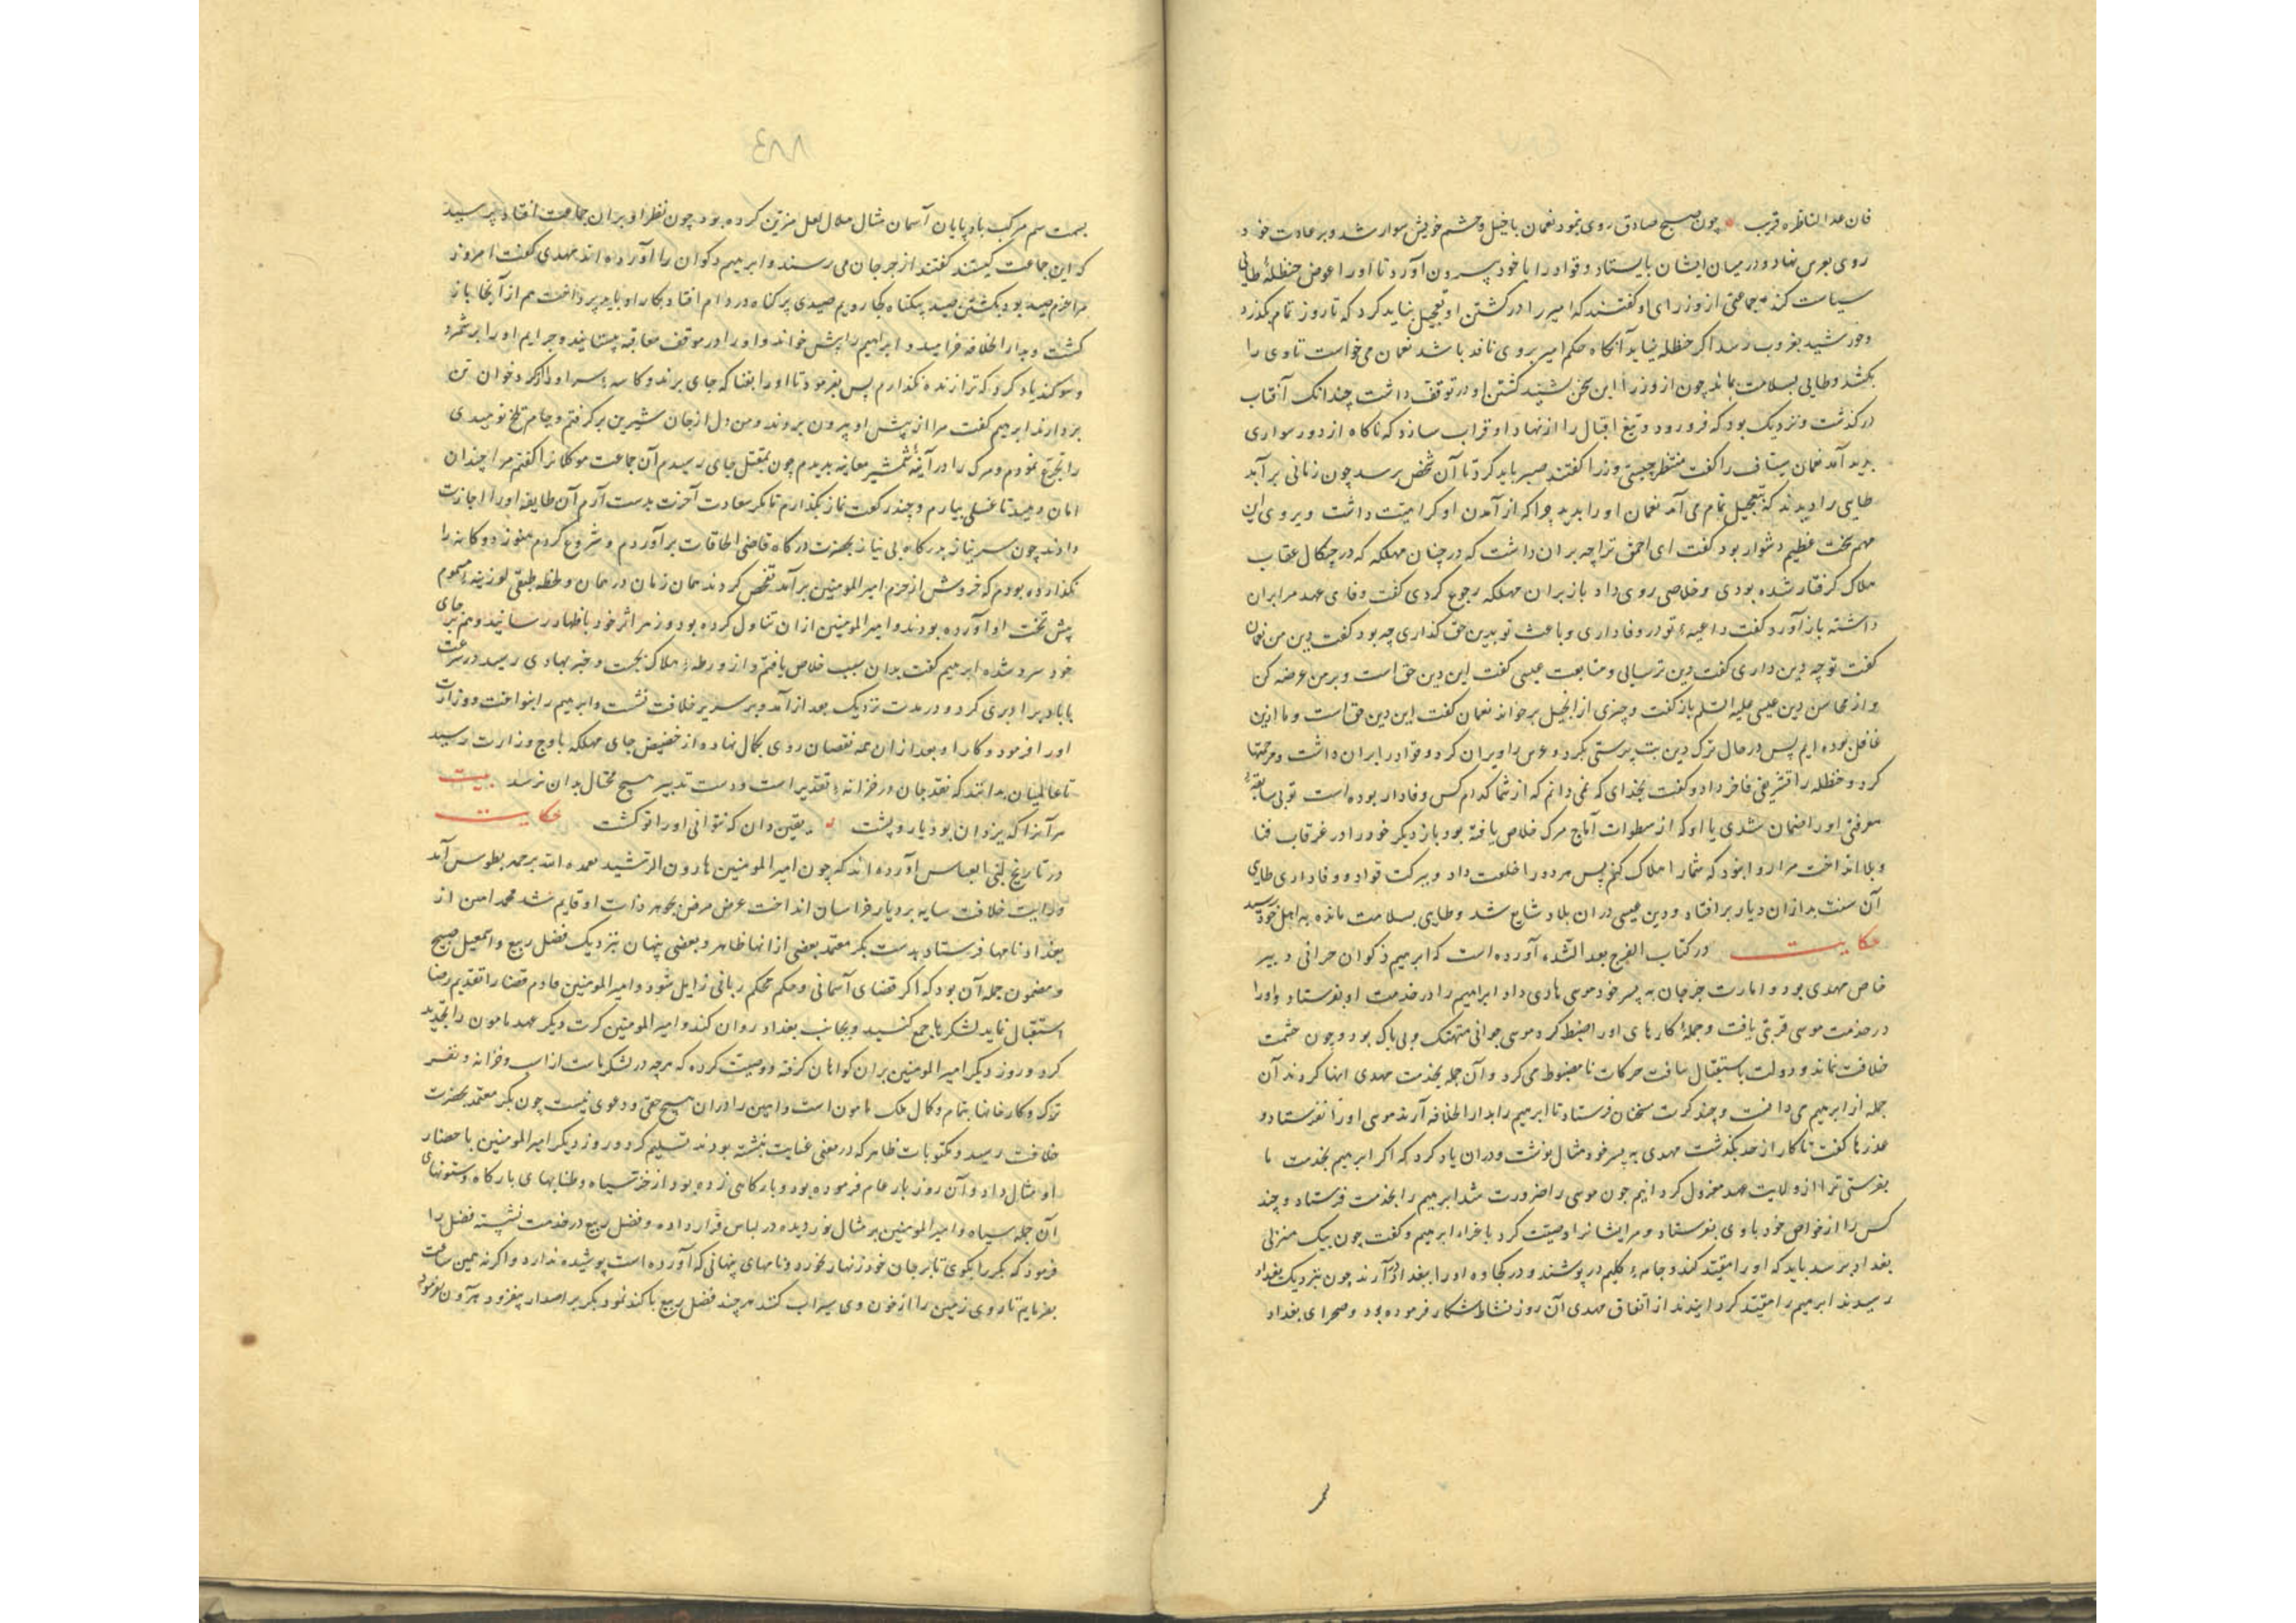 فان غدا لناظره قریب چون صبح صادق روی نمود نعمان با خیل و حشم خویش سوار شد و بر عادت خود
روی بغرس نهاد و در میان ایشان بایستاد و قراد را با خود بیرون آورد تا او را عوض حنظلهٔ طایی
سیاست کند جماعتی از وزرای او گفتند که امیر را در کشتن او تعجیل نباید کرد که تا روز تمام بگذرد
و خورشید بغروب رسد اگر حنظله نیاید آنگاه حکم امیر بر وی نافذ باشد نعمان می خواست تا وی را
بکشد و طایی بسلامت بماند چون از وزرا این سخن بشنید کشتن او در توقف داشت چندانک آفتاب
در گذشت و نزدیک بود که فرو رود و تیغ اقبال را از نهاد او قراب سازد که ناکاه از دور سواری
بدید آمد نعمان سیاف را گفت منتظر چیستی وزرا گفتند صبر باید کرد تا آن شخص برسد چون زمانی برآمد
طایی را دیدند که بتعجیل تمام می آمد نعمان او را بدید چرا که از آمدن او کراهیت داشت و بر وی این
مهم سخت عظیم دشوار بود گفت ای احمق ترا چه بران داشت که در چنان مهلکه که در چنکال عقاب
هلاک گرفتار شده بودی و خلاصی روی داد باز بران مهلکه رجوع کردی گفت وفای عهد مرا بران
داشته باز آورد گفت داعیهٔ تو در وفاداری و باعث تو بدین حق گذاری چه بود گفت دین من نعمان
گفت تو چه دین داری گفت دین ترسایی و متابعت عیسی گفت این دین حق است و بر من عرضه کن
و از محاسن دین عیسی علیه السلم باز گفت و چیزی از انجیل بر خواند نعمان گفت این دین حق است و ما ازین
غافل بوده ایم پس در حال ترک دین بت پرستی بکرد و غرس را ویران کرد و قراد را بران داشت و مرحمتها
کرد و حنظله را تشریفی فاخر داد و گفت بخدای که نمی دانم که از شما کدام کس وفادار بوده است تو بی سابقهٔ
معرفتی او را ضمان شدی یا او که از سطوات آماج مرک خلاص یافته بود باز دیکر خود را در غرقاب فنا
و بلا انداخت مرا روا نبود که شما را هلاک کنم پس هر دو را خلعت داد و ببرکت قراد و وفاداری طایی
آن سنت بد ازان دیار بر افتاد و دین عیسی دران بلاد شایع شد و طایی بسلامت مانده به اهل خود رسید
حکایت در کتاب الفرج بعد الشده آورده است که ابرهیم ذکوان حرانی دبیر
خاص مهدی بود و امارت جرجان به پسر خود موسی هادی داد ابراهیم را در خدمت او بفرستاد و او را
در خدمت موسی قربتی یافت و جملهٔ کارهای او را ضبط کرد موسی جوانی متهتک و بی باک بود و چون حشمت
خلافت نماند و دولت باستقبال حرکات نامضبوط می کرد و آن جمله بخدمت مهدی انها کردند آن
جمله از ابرهیم می دانست و چند کرت سخنان فرستاد تا ابرهیم را بدار الخلافه آرند موسی او را نفرستاد و
عذرها گفت تا کار از حد بگذشت مهدی به پسر خود مثال نوشت و دران یاد کرد که اگر ابرهیم بخدمت ما
بفرستی ترا از ولایت عهد معزول کردانیم چون موسی را ضرورت شد ابرهیم را بخدمت فرستاد و چند
کس را از خواص خود با وی بفرستاد و مر ایشانرا وصیت کرد باحراز ابرهیم و گفت چون بیک منزلی
بغداد برسد باید که او را مقید کنند و جامهٔ کلیم در پوشند و در کجاوه او را ببغداد در آرند چون بنزدیک بغداد
رسیدند ابرهیم را مقید کردانیدند از اتفاق مهدی آن روز نشاط شکار فرموده بود و صحرای بغداد
۸۸۴
بسمت سم مرکب باد پایان آسمان مثال هلال لعل مزین کرده بود چون نظر او بران جماعت افتاد پرسید
که این جماعت کیستند گفتند از جرجان می رسند و ابرهیم ذکوان را آورده اند مهدی گفت امروز
مرا عزم صید بود بکشتن صید بیکناه کجا رویم صیدی پر کناه در دام افتاد بکار او باید پرداخت هم از آنجا باز
کشت و بدار الخلافه خرامید و ابراهیم را پیش خواند و او را در موقف معاتبه بیستانید و جرایم او را بر شمرد
و سوکند یاد کرد که ترا زنده نکذارم پس بفرمود تا او را بفنا که جای برند و کاسهٔ سر او را از کردخوان تن
بردارند ابرهیم گفت مرا از پیش او بیرون بردند و من دل از جان شیرین بر گرفتم و جام تلخ نومیدی
را تجرع نمودم و مرک را در آینهٔ شمشیر معاینه بدیدم چون بمقتل جای رسیدم آن جماعت موکلانرا گفتم مرا چندان
امان دهید تا غسلی بیارم و چند رکعت نماز بگذارم تا مکر سعادت آخرت بدست آرم آن طایفه او را اجازت
دادند چون سر نیاز بدرکاه بی نیاز بحضرت درکاه قاضی الحاجات برآوردم و شروع کردم هنوز دوکانه را
نکذارده بودم که خروش از حرم امیر المومنین برآمد تفحص کردند همان زمان در همان لحظه طبقی لوزینهٔ مسموم
پیش تخت او آورده بودند و امیر المومنین ازان تناول کرده بود و زهر اثر خود باظهار رسانید و هم بر جای
خود سرد شده ابرهیم گفت بدان سبب خلاص یافتم و از ورطهٔ هلاک بجست و خبر بهادی رسید در سرعت
با باد برابری کرد و در مدت نزدیک بغداد آمد و بر سریر خلافت نشست و ابرهیم را بنواخت و وزارت
او را فرمود و کار او بعد ازان همه نقصان روی بکمال نهاده از حضیض جای مهلکه باوج وزارت رسید
تا عالمیان بدانند که نقد جان در خزانهٔ تقدیر است و دست تدبیر هیچ محتال بدان نرسد بیت
مر آنرا که یزدان بود یار و پشت یقین دان که نتوانی او را تو کشت حکایت
در تاریخ بنی العباس آورده اند که چون امیر المومنین هارون الرشید تغمده الله برحمه بطوس آمد
و رایت خلافت سایه بر دیار خراسان انداخت عرض مرض بجوهر ذات او قایم شد محمد امین از
بغداد نامها فرستاد بدست بکر معتمد بعضی ازانها ظاهر و بعضی پنهان بنزدیک فضل ربیع و اسمعیل صبیح
و مضمون جمله آن بود که اگر قضای آسمانی و حکم محکم ربانی زایل شود و امیر المومنین خادم قضا را تقدیم رضا
استقبال نماید لشکر با جمع کنید و بجانب بغداد روان کند و امیر المومنین کرت دیکر عهد مامون را تجدید
کرد و روز دیکر امیر المومنین بران کواهان گرفته و وصیت کرده که هرچه در لشکر ماست از اسب و خزانه و نفر
ترک و کارخانها بتمام و کمال ملک مامون است و امین را دران هیچ حقی و دعوی نیست چون بکر معتمد بحضرت
خلافت رسید و مکتوبات ظاهر که در معنی عنایت نبشته بودند تسلیم کرد و روز دیکر امیر المومنین باحضار
او مثال داد و آن روز بار عام فرموده بود و بارکاهی زده بود از خز سیاه و طنابهای بارکاه و ستونهای
آن جمله سیاه و امیر المومنین بر مثال نور دیده در لباس قرار داده و فضل ربیع در خدمت نشسته فضل را
فرمود که بکر را بکوی تا بر جان خود زنهار نخورد و نامهای پنهانی که آورده است پوشیده ندارد و اگر نه همین ساعت
بفرمایم تا روی زمین را از خون وی سیراب کنند هر چند فضل ربیع باکند نمود بکر بر اصرار بیفزود هرون بفرمود